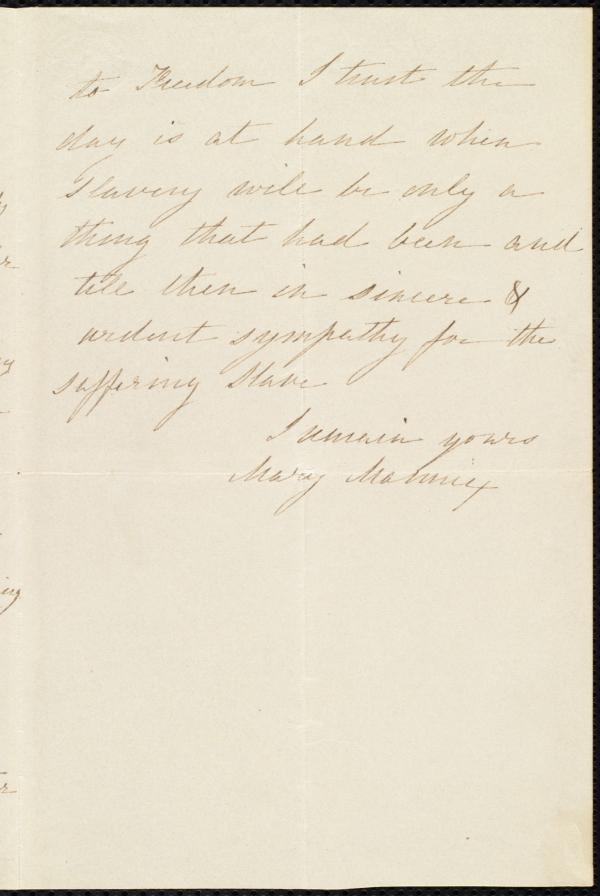 to Freedom I trust the
day is at hand when
Slavery will be only a
thing that had been and
till then in sincere &
ardent sympathy for the
suffering Slave
I remain yours
Mary Mannix